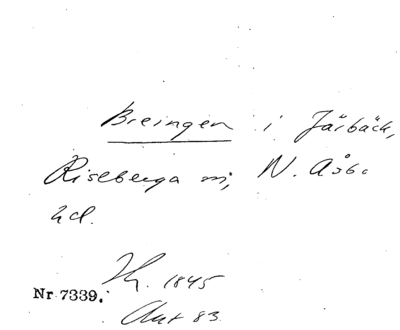 Breingen i Järbäck,
Riseberga sn, N. Åsbo
hd.
Hy. 1845
Nr 7339.
Akt 83